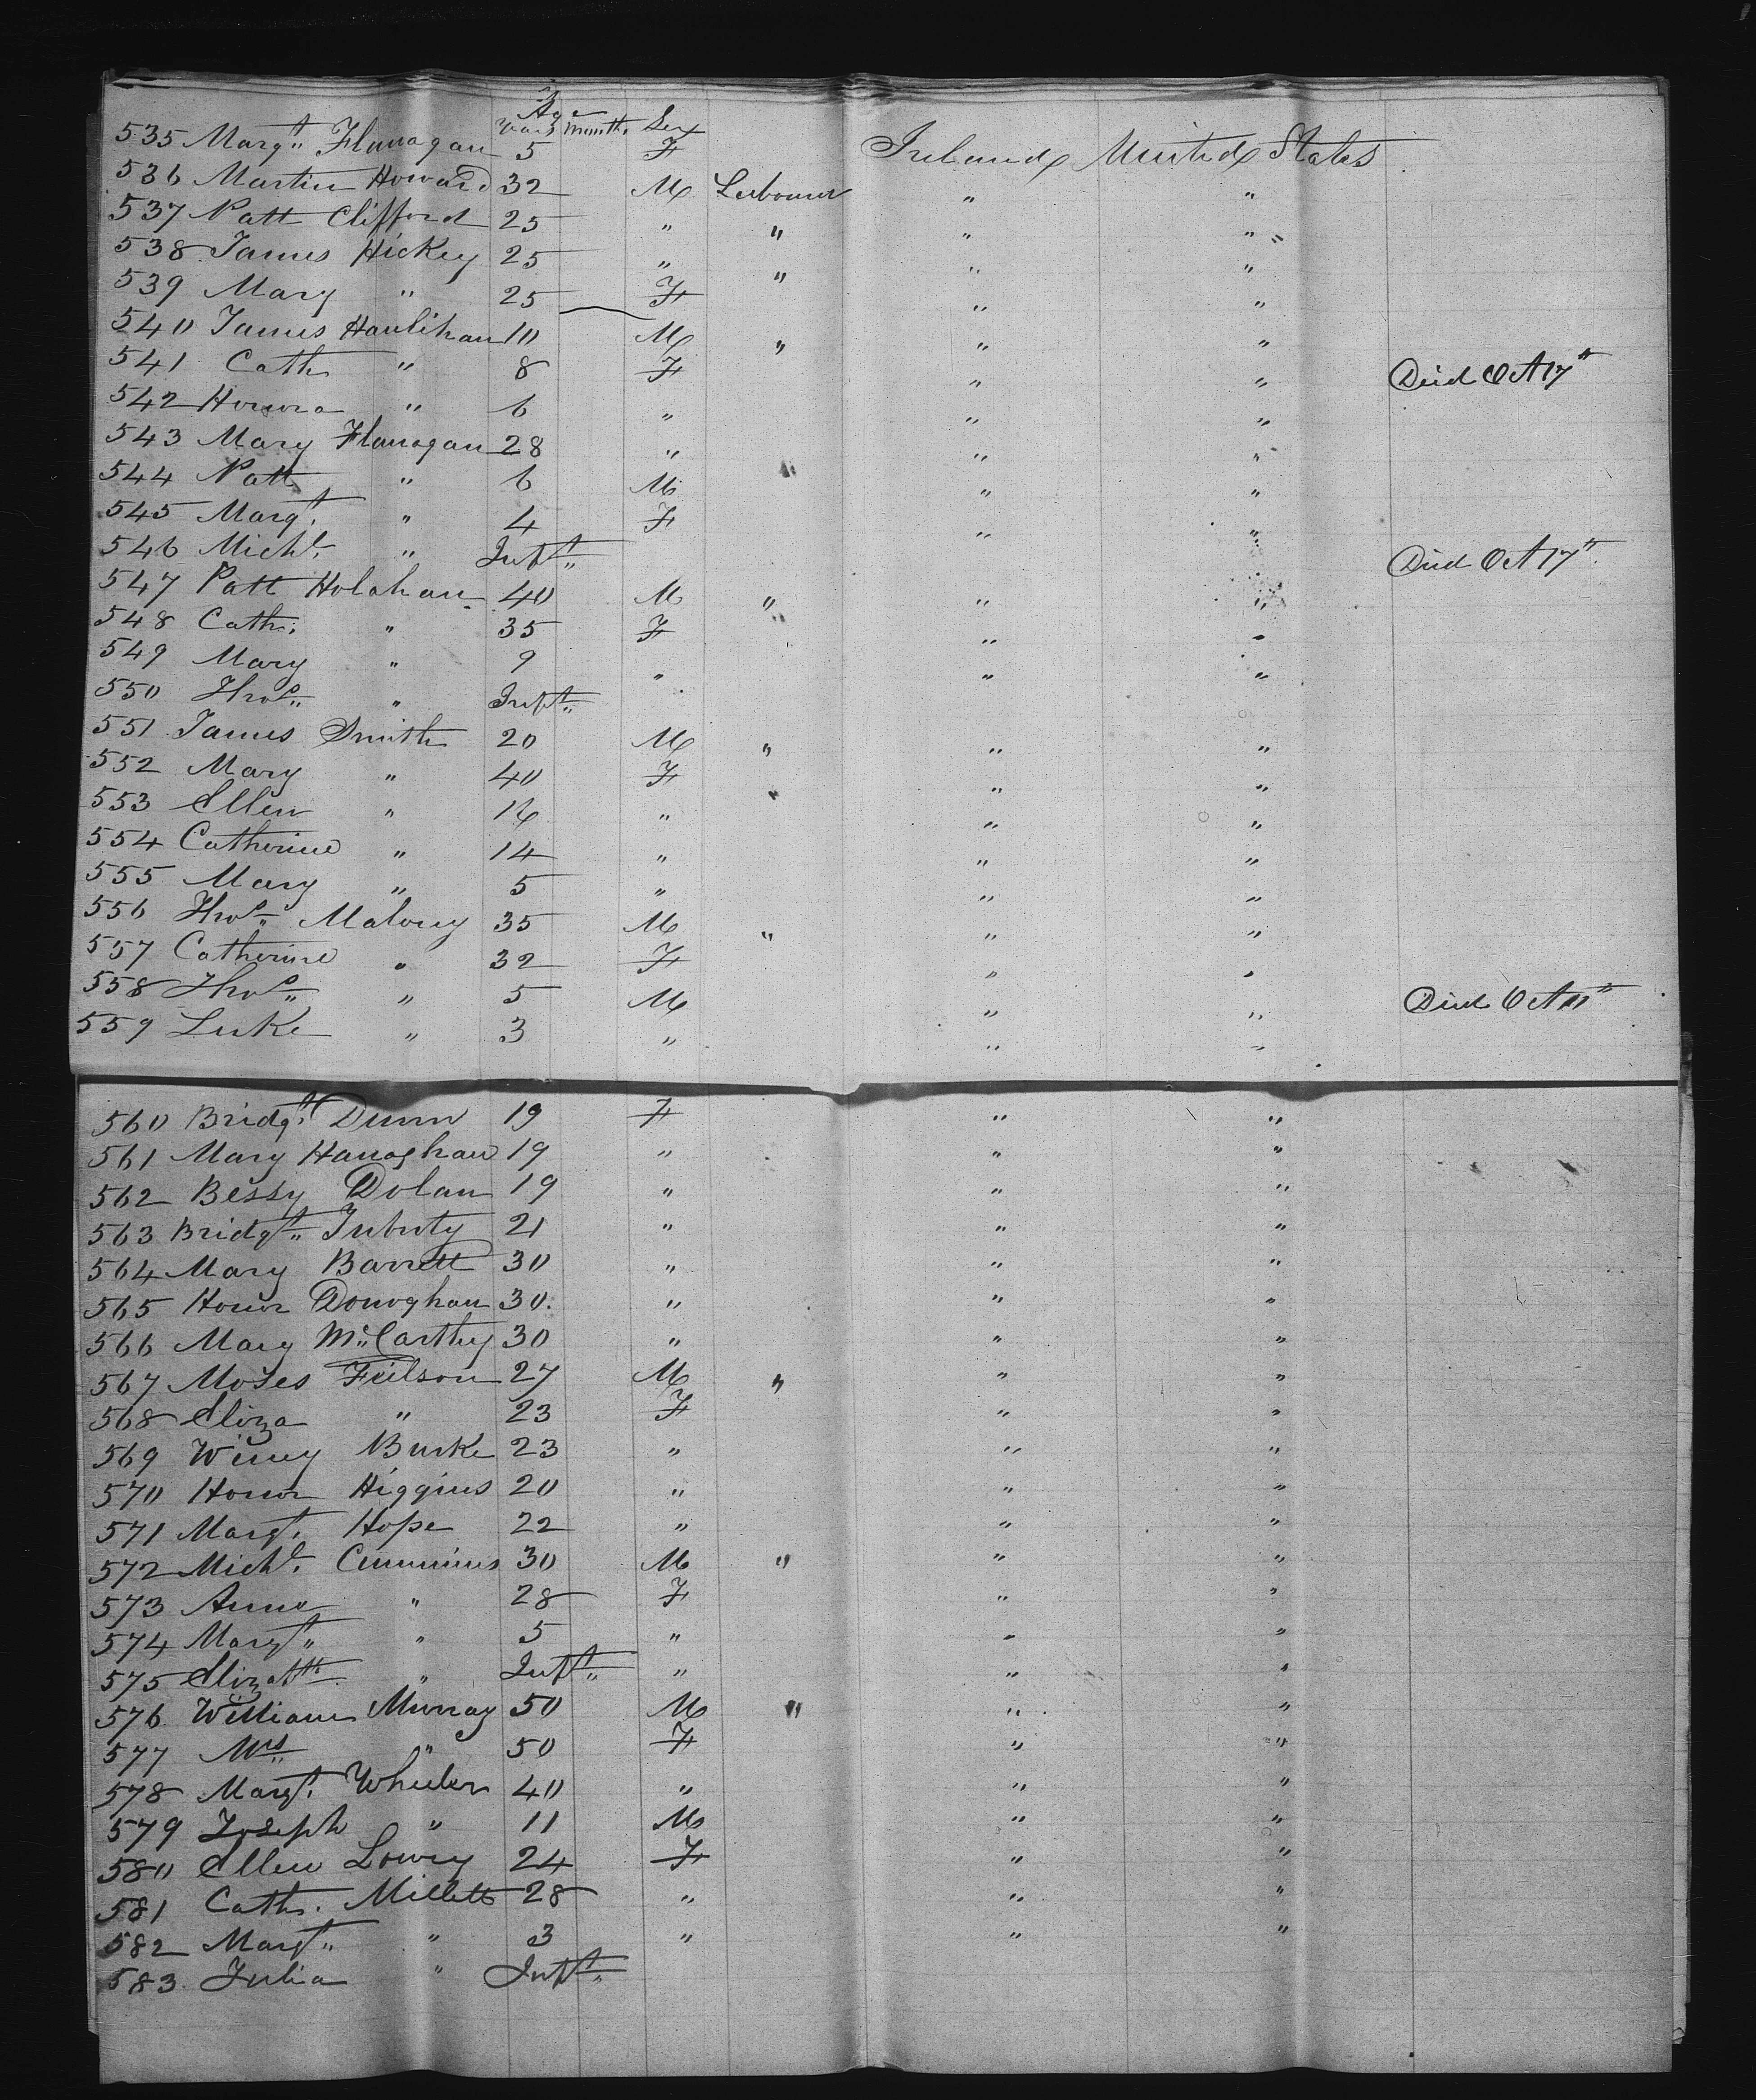 Age
Years Months Sex
535 Margt Flanagan 5 F Ireland United States
536 Martin Howard 32 M Labourer " "
537 Patt Clifford 25 " " " "
538 James Hickey 25 " " " "
539 Mary " 25 F " "
540 James Haulihan 10 M " " "
541 Cath " 8 F " " Died Oct 17th
542 Honora " 6 " " "
543 Mary Flanagan 28 " " "
544 Patt " 6 M " "
545 Margt. " 4 F " "
546 Michl. " Inft " " Died Oct 17th
547 Patt Holahan 40 M " " "
548 Cath. " 35 F " "
549 Mary " 9 " " "
550 Thos " Inft
551 James Smith 20 M " " "
552 Mary " 40 F " "
553 Ellen " 16 " " "
554 Catherine " 14 " " "
555 Mary " 5 " " "
556 Thos Malony 35 M " " "
557 Catherine " 32 F " "
558 Thos " 5 M " " Died Oct 11th
559 Luke " 3 " " "
560 Bridgt. Dunn 19 F " "
561 Mary Hanaghan 19 " " "
562 Bessy Dolan 19 " " "
563 Bridgt 21 " " "
564 Mary Barrett 30 " " "
565 Honor Donoghan 30. " " "
566 Mary McCarthy 30 " " "
567 Moses Feilson 27 M " " "
568 Eliza " 23 F " "
569 Winny Burke 23 " " "
570 Honor Higgins 20 " " "
571 Margt. Hope 22 " " "
572 Michl. Cummins 30 M " " "
573 Anne " 28 F " "
574 Margt " 5 " " "
575 Elizabth " Inft " " "
576 William Murray 50 M " " "
577 Mrs " 50 F " "
578 Margt. Wheeler 40 " " "
579 Joseph " 11 M " "
580 Ellen Lowry 24 F " "
581 Cath. Millett 28 " " "
582 Margt " 3 " " "
583 Julia " Inft